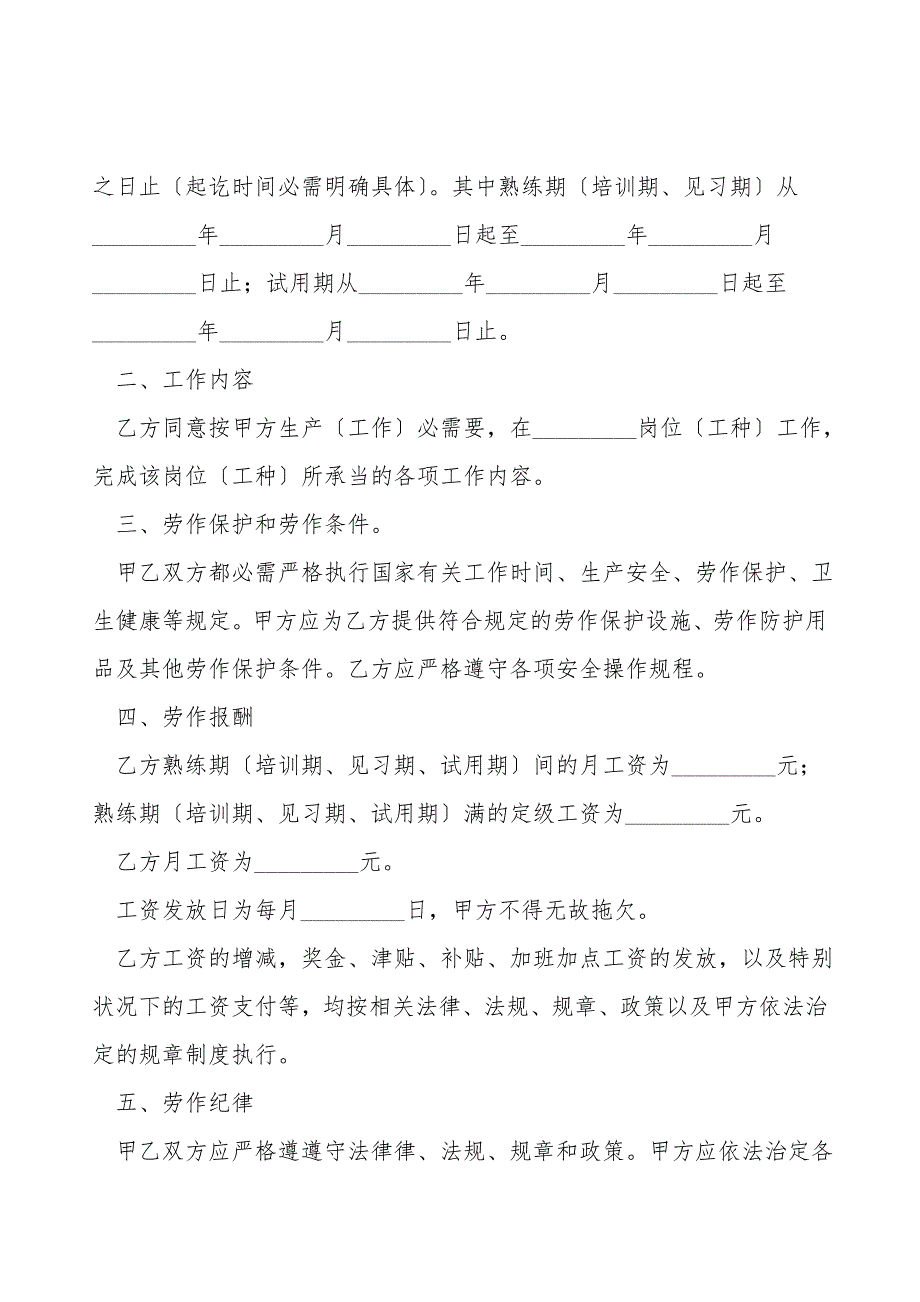 之日止〔起讫时间必需明确具体〕。其中熟练期〔培训期、见习期〕从
_________年_________月_________日起至_________年_________月
_________日止；试用期从_________年_________月_________日起至
_________年_________月_________日止。
二、工作内容
乙方同意按甲方生产〔工作〕必需要，在_________岗位〔工种〕工作，
完成该岗位〔工种〕所承当的各项工作内容。
三、劳作保护和劳作条件。
甲乙双方都必需严格执行国家有关工作时间、生产安全、劳作保护、卫
生健康等规定。甲方应为乙方提供符合规定的劳作保护设施、劳作防护用
品及其他劳作保护条件。乙方应严格遵守各项安全操作规程。
四、劳作报酬
乙方熟练期〔培训期、见习期、试用期〕间的月工资为_________元；
熟练期〔培训期、见习期、试用期〕满的定级工资为_________元。
乙方月工资为_________元。
工资发放日为每月_________日，甲方不得无故拖欠。
乙方工资的增减，奖金、津贴、补贴、加班加点工资的发放，以及特别
状况下的工资支付等，均按相关法律、法规、规章、政策以及甲方依法治
定的规章制度执行。
五、劳作纪律
甲乙双方应严格遵遵守法律律、法规、规章和政策。甲方应依法治定各